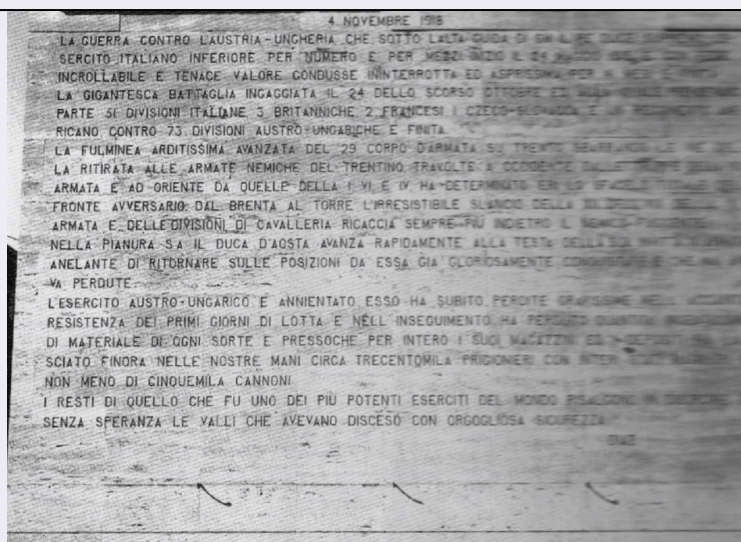 4 NOVEMBRE 1918
LA GUERRA CONTRO L'AUSTRIA-UNGHERIA CHE SOTTO L'ALTA GUIDA DI S M IL RE
SERCITO ITALIANO INFERIORE PER NUMERO E PER MEZZI INIZIO IL 24
INCROLLABILE E TENACE VALORE CONDUSSE ININTERROTTA ED ASPRISSIMA PER
LA GIGANTESCA BATTAGLIA INGAGGIATA IL 24 DELLO SCORSO OTTOBRE ED
PARTE 51 DIVISIONI ITALIANE 3 BRITANNICHE 2 FRANCESI 1 CZECO-SLOVACCA E UN
RICANO CONTRO 73 DIVISIONI AUSTRO-UNGARICHE E FINITA
LA FULMINEA ARDITISSIMA AVANZATA DEL 29 CORPO D'ARMATA SU TRENTO
LA RITIRATA ALLE ARMATE NEMICHE DEL TRENTINO TRAVOLTE A OCCIDENTE DALLE
ARMATA E AD ORIENTE DA QUELLE DELLA I VI E IV HA DETERMINATO IERI LO SFACELO
FRONTE AVVERSARIO. DAL BRENTA AL TORRE L'IRRESISTIBILE SLANCIO DELLA
ARMATA E DELLE DIVISIONI DI CAVALLERIA RICACCIA SEMPRE PIU INDIETRO IL NEMICO
NELLA PIANURA S A IL DUCA D'AOSTA AVANZA RAPIDAMENTE ALLA TESTA DELLA SUA
ANELANTE DI RITORNARE SULLE POSIZIONI DA ESSA GIA GLORIOSAMENTE CONQUISTATE E CHE MAI
VA PERDUTE.
L'ESERCITO AUSTRO-UNGARICO E ANNIENTATO ESSO HA SUBITO PERDITE GRAVISSIME NELL
RESISTENZA DEI PRIMI GIORNI DI LOTTA E NELL'INSEGUIMENTO HA PERDUTO
DI MATERIALE DI OGNI SORTE E PRESSOCHE PER INTERO I SUOI MAGAZZINI ED I DEPOSITI
SCIATO FINORA NELLE NOSTRE MANI CIRCA TRECENTOMILA PRIGIONIERI CON INTERI
NON MENO DI CINQUEMILA CANNONI
I RESTI DI QUELLO CHE FU UNO DEI PIÙ POTENTI ESERCITI DEL MONDO RISALGONO IN DISORDINE E
SENZA SPERANZA LE VALLI CHE AVEVANO DISCESO CON ORGOGLIOSA SICUREZZA
DIAZ